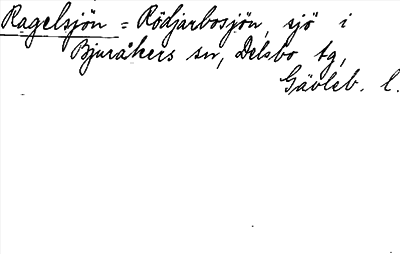 Ragelsjön = Rödjarbosjön, sjö i
Bjuråkers sn, Delsbo tg,
Gävleb. l.